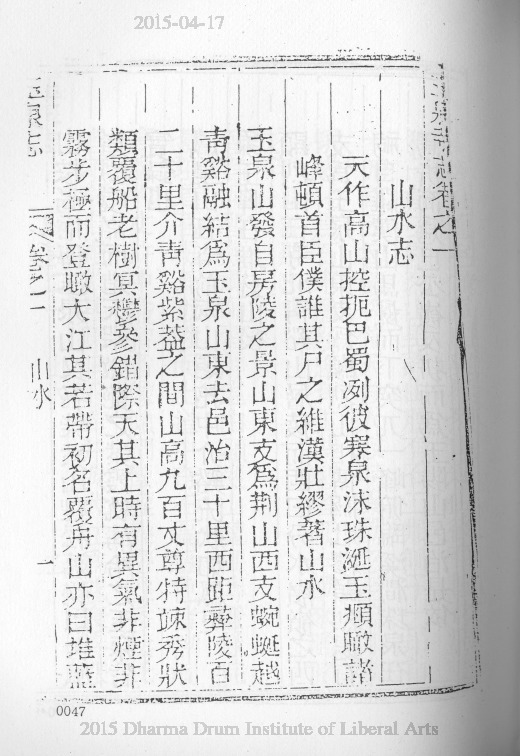 2015-04-17
玉泉寺志卷之一
山水志
天作高山控扼巴蜀冽彼寒泉沫珠涎玉頫瞰諸
峰頓首臣僕誰其尸之維漢壯繆著山水
玉泉山發自房陵之景山東支爲荆山西支蜿蜒越
青谿融結爲玉泉山東去邑治三十里西距彝陵百
二十里介青谿紫蓋之間山高九百丈尊特竦秀狀
類覆船老樹冥欝參錯際天其上時有異氣非煙非
霧步極而登瞰大江其若帶初名覆舟山亦曰堆藍
玉泉志 卷之一 山水 一
0047
2015 Dharma Drum Institute of Liberal Arts